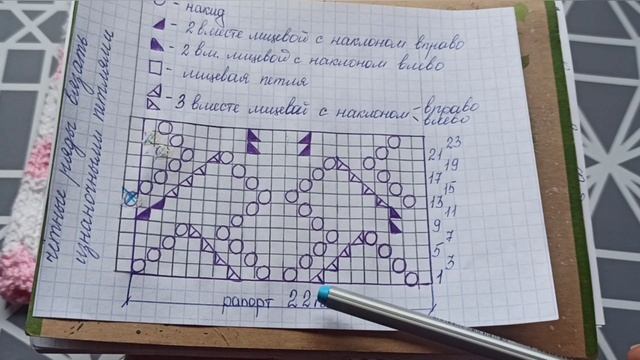 - накид
- 2 вместе лицевой с наклоном вправо
- 2 вм. лицевой с наклоном влево
- лицевая петля
- 3 вместе лицевой с наклоном - вправо
влево
четные ряды вязать
изнаночными петлями
23
21
19
17
15
13
11
9
7
5
3
1
рапорт 22